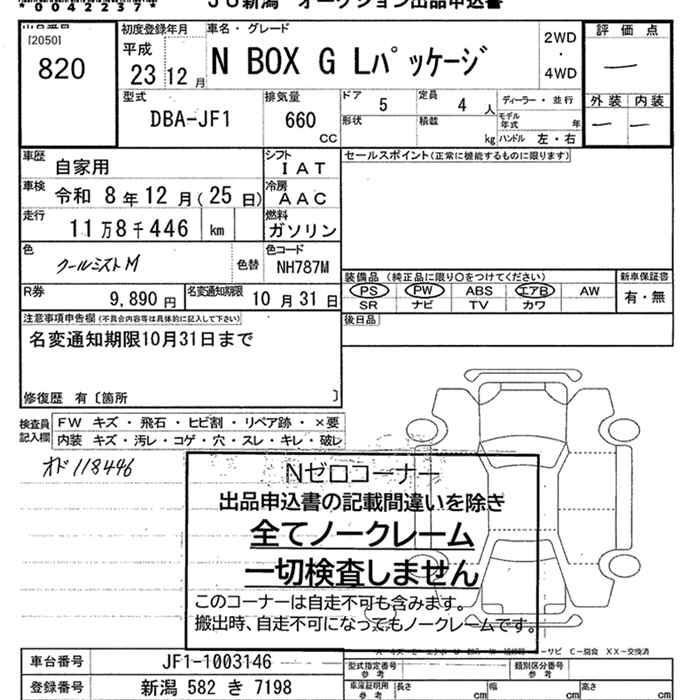 *0042237*
JU新潟 オークション出品申込書
[2050]
820
初度登録年月
平成
23 12 月
車名・グレード
N BOX G Lパッケージ
2WD
・
4WD
評 価 点
—
外 装 内 装
— —
型式
DBA-JF1
排気量
660
CC
ドア 5
定員 4 人
形状
積載 kg
ディーラー・並行
モデル年式 年
ハンドル 左・右
車歴 自家用
シフト IAT
セールスポイント(正常に機能するものに限ります)
車検 令和 8 年 12 月(25 日)
冷房 AAC
走行 11万8千446 km
燃料 ガソリン
色 クールミストM
色替
色コード NH787M
装備品(純正品に限り○をつけてください)
PS PW ABS エアB AW
SR ナビ TV カワ
新車保証書
有・無
R券 9,890 円
名変通知期限 10 月 31 日
後日品
注意事項申告欄(不具合内容等は具体的に記入して下さい)
名変通知期限10月31日まで
修復歴 有〔箇所 〕
検査員記入欄
FW キズ・飛石・ヒビ割・リペア跡・×要
内装 キズ・汚レ・コゲ・穴・スレ・キレ・破レ
オド118446
Nゼロコーナー
出品申込書の記載間違いを除き
全てノークレーム
一切検査しません
このコーナーは自走不可も含みます。
搬出時、自走不可になってもノークレームです。
サビ C−腐食 XX−交換済
車台番号 JF1-1003146
型式指定番号 参考
類別区分番号 参考
登録番号 新潟 582 き 7198
車庫証明用 参考
長さ cm 幅 cm 高さ cm